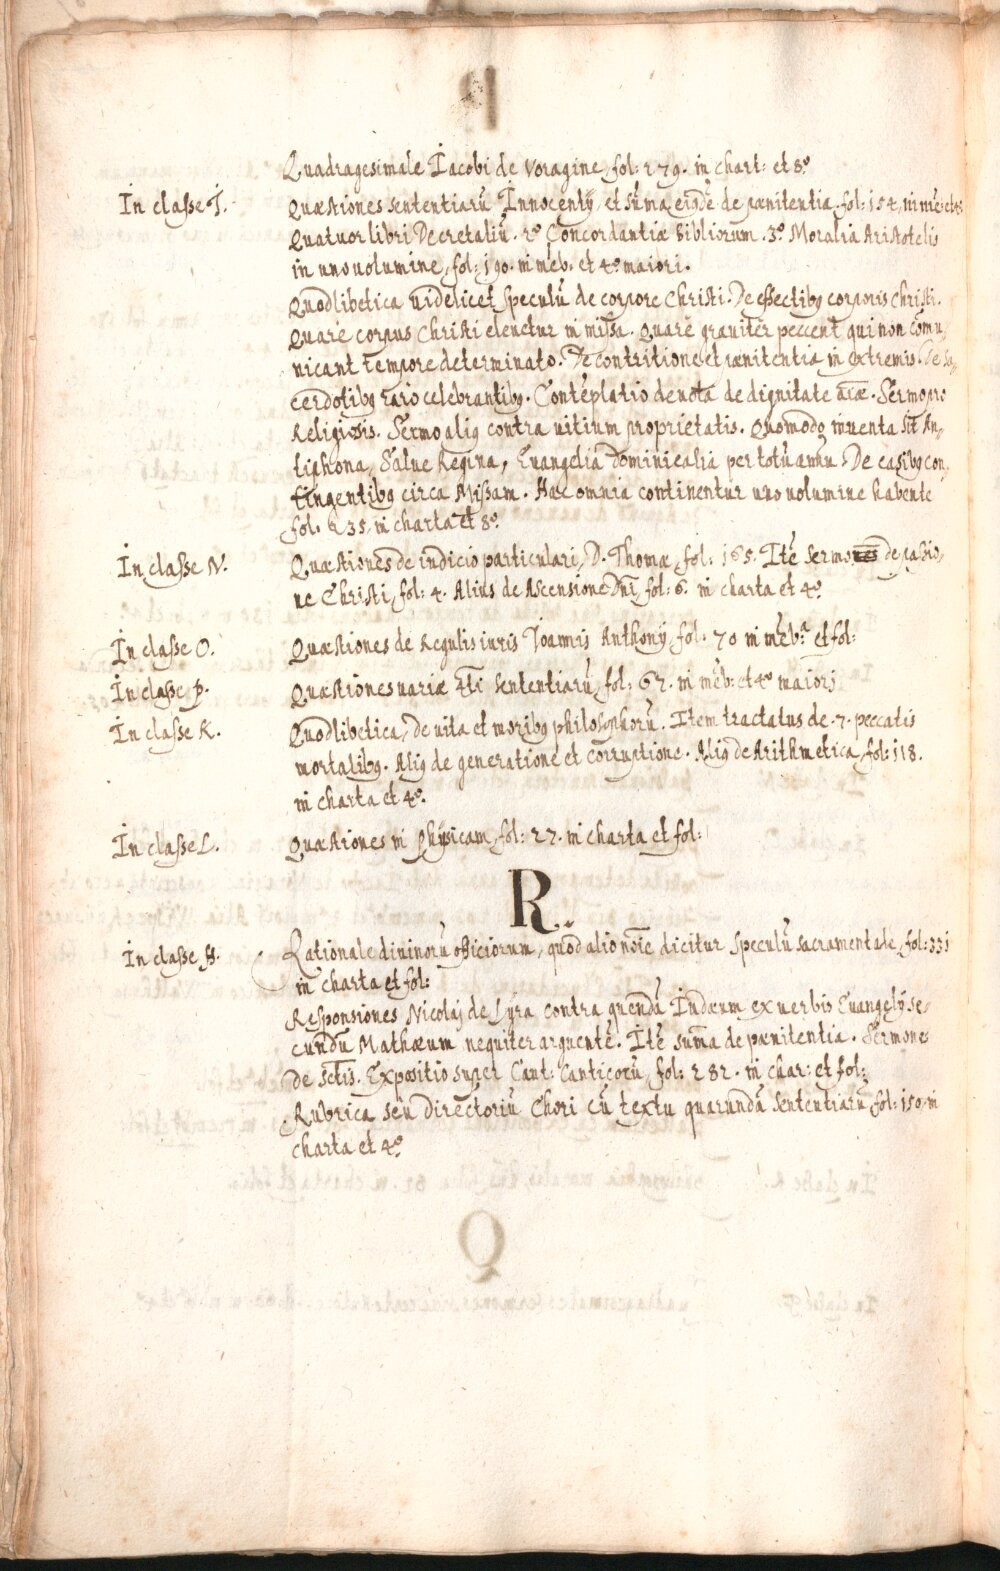 Quadragesimale Iacobi de Voragine, fol: 279. in chart: et 8º
In classe I. Quæstiones sententiarũ Innocentij, et sũma eiusdẽ de pænitentia. fol: 154, in mẽ: et
Quatuor libri Decretaliũ. 2º Concordantiæ Bibliorum. 3º Moralia Aristotelis
in uno volumine, fol: 190. in mẽb. et 4º maiori.
Quodlibetica uidelicet speculũ de corpore Christi. De effectibꝰ corporis Christi.
Quarè corpus Christi eleuetur in missa. Quarè grauitèr peccent qui non cõmu,
nicant tempore determinato. De contritione et pænitentia in extremis. De sa,
cerdotibꝰ raro celebrantibꝰ. Contẽplatio deuota de dignitate aīæ. Sermo pro
Religiosis. Sermo aliꝰ contra uitium proprietatis. Quomodo inuenta sit An,
tiphona, Salue Regina, Euangelia dominicalia per totũ annũ. De casibꝰ con,
tingentibꝰ circa Missam. Hæc omnia continentur uno uolumine habente
fol. 235, in charta et 8º
In classe N. Quæstiones de iudicio particulari, D. Thomæ, fol: 165. Itẽ sermones de passio,
ne Christi, fol: 4. Alius de Ascensione Dñi, fol: 6. in charta et 4º
In classe O. Quæstiones de Regulis iuris Ioannis Anthonij, fol: 70 in mẽb.ª et fol:
In classe P. Quæstiones uariæ 4ti sententiarũ, fol: 62. in mẽb: et 4º maiori
In classe K. Quodlibetica, de uita et moribꝰ philosophorũ. Item tractatus de 7. peccatis
mortalibꝰ. Aliꝰ de generatione et corruptione. Aliꝰ de Arithmetica, fol: 118.
in charta et 4º.
In classe L. Quæstiones in Physicam, fol: 27. in charta et fol:
R.
In classe H. Rationale diuinorũ officiorum, quod alio noīe dicitur speculũ sacramentale, fol: 331
in charta et fol:
Responsiones Nicolaj de Lyra contra quendã Iudæum ex uerbis Euangelij se,
cundũ Mathæum nequiter arguentẽ. Itẽ sũma de pænitentia. Sermones
de sctis. Expositio super Cant: Canticorũ fol: 282. in char: et fol:
Rubrica seu directoriũ Chori cũ textu quarundã sententiarũ fol: 150. in
charta et 4º